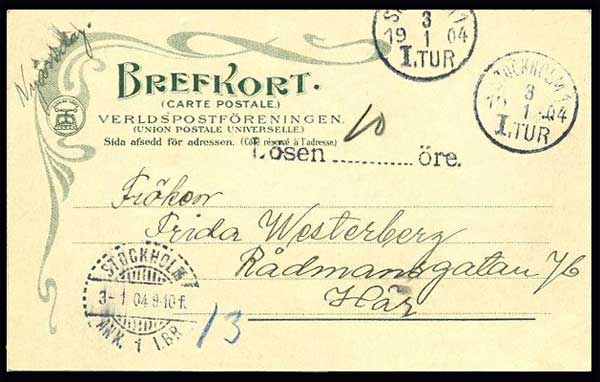 Nyårsdag.
BREFKORT.
(CARTE POSTALE.)
VERLDSPOSTFÖRENINGEN.
(UNION POSTALE UNIVERSELLE.)
Sida afsedd för adressen. (Côté réservé à l'adresse.)
10
Lösen ............ öre.
Fröken
Frida Westerberg
Rådmansgatan 76
Här
13
3
19 04
1
I.TUR
STOCKHOLM 1
3
19 04
1
I.TUR
STOCKHOLM
3-1 04 9-10 f.
1 LBR